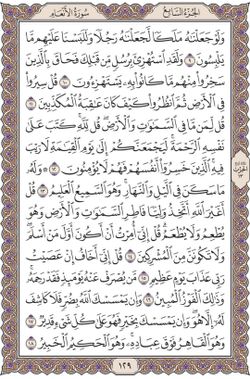 الجزء السابع
سورة الأنعام
وَلَوْ جَعَلْنَاهُ مَلَكًا لَّجَعَلْنَاهُ رَجُلًا وَلَلَبَسْنَا عَلَيْهِم مَّا
يَلْبِسُونَ ٩ وَلَقَدِ اسْتُهْزِئَ بِرُسُلٍ مِّن قَبْلِكَ فَحَاقَ بِالَّذِينَ
سَخِرُوا مِنْهُم مَّا كَانُوا بِهِ يَسْتَهْزِءُونَ ١٠ قُلْ سِيرُوا
فِي الْأَرْضِ ثُمَّ انظُرُوا كَيْفَ كَانَ عَاقِبَةُ الْمُكَذِّبِينَ ١١
قُل لِّمَن مَّا فِي السَّمَاوَاتِ وَالْأَرْضِ قُل لِّلَّهِ كَتَبَ عَلَى
نَفْسِهِ الرَّحْمَةَ لَيَجْمَعَنَّكُمْ إِلَى يَوْمِ الْقِيَامَةِ لَا رَيْبَ
فِيهِ الَّذِينَ خَسِرُوا أَنفُسَهُمْ فَهُمْ لَا يُؤْمِنُونَ ١٢ وَلَهُ
مَا سَكَنَ فِي اللَّيْلِ وَالنَّهَارِ وَهُوَ السَّمِيعُ الْعَلِيمُ ١٣ قُلْ
أَغَيْرَ اللَّهِ أَتَّخِذُ وَلِيًّا فَاطِرِ السَّمَاوَاتِ وَالْأَرْضِ وَهُوَ
يُطْعِمُ وَلَا يُطْعَمُ قُلْ إِنِّي أُمِرْتُ أَنْ أَكُونَ أَوَّلَ مَنْ أَسْلَمَ
وَلَا تَكُونَنَّ مِنَ الْمُشْرِكِينَ ١٤ قُلْ إِنِّي أَخَافُ إِنْ عَصَيْتُ
رَبِّي عَذَابَ يَوْمٍ عَظِيمٍ ١٥ مَّن يُصْرَفْ عَنْهُ يَوْمَئِذٍ فَقَدْ رَحِمَهُ
وَذَٰلِكَ الْفَوْزُ الْمُبِينُ ١٦ وَإِن يَمْسَسْكَ اللَّهُ بِضُرٍّ فَلَا كَاشِفَ
لَهُ إِلَّا هُوَ وَإِن يَمْسَسْكَ بِخَيْرٍ فَهُوَ عَلَى كُلِّ شَيْءٍ قَدِيرٌ
١٧ وَهُوَ الْقَاهِرُ فَوْقَ عِبَادِهِ وَهُوَ الْحَكِيمُ الْخَبِيرُ ١٨
١٢٩